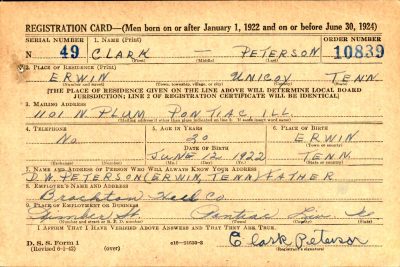 REGISTRATION CARD—(Men born on or after January 1, 1922 and on or before June 30, 1924)
SERIAL NUMBER 1. NAME (Print) ORDER NUMBER
N 49 CLARK — PETERSON 10839
(First) (Middle) (Last)
2. PLACE OF RESIDENCE (Print)
ERWIN UNICOI TENN
(Town, township, village, or city) (County) (State)
[THE PLACE OF RESIDENCE GIVEN ON THE LINE ABOVE WILL DETERMINE LOCAL BOARD
JURISDICTION; LINE 2 OF REGISTRATION CERTIFICATE WILL BE IDENTICAL]
3. MAILING ADDRESS
1101 N. PLUM PONTIAC ILL.
[Mailing address if other than place indicated on line 2. If same insert word same]
4. TELEPHONE 5. AGE IN YEARS 6. PLACE OF BIRTH
No 20 ERWIN
DATE OF BIRTH (Town or county)
JUNE 12 1922 TENN.
(Exchange) (Number) (Mo.) (Day) (Yr.) (State or country)
7. NAME AND ADDRESS OF PERSON WHO WILL ALWAYS KNOW YOUR ADDRESS
D. W. PETERSON (ERWIN, TENN) FATHER
8. EMPLOYER'S NAME AND ADDRESS
Co
9. PLACE OF EMPLOYMENT OR BUSINESS
St. Pontiac
(Number and street or R. F. D. number) (Town) (County) (State)
I AFFIRM THAT I HAVE VERIFIED ABOVE ANSWERS AND THAT THEY ARE TRUE.
D. S. S. Form 1
(Revised 6-1-42) (over) Clark Peterson
(Registrant's signature)